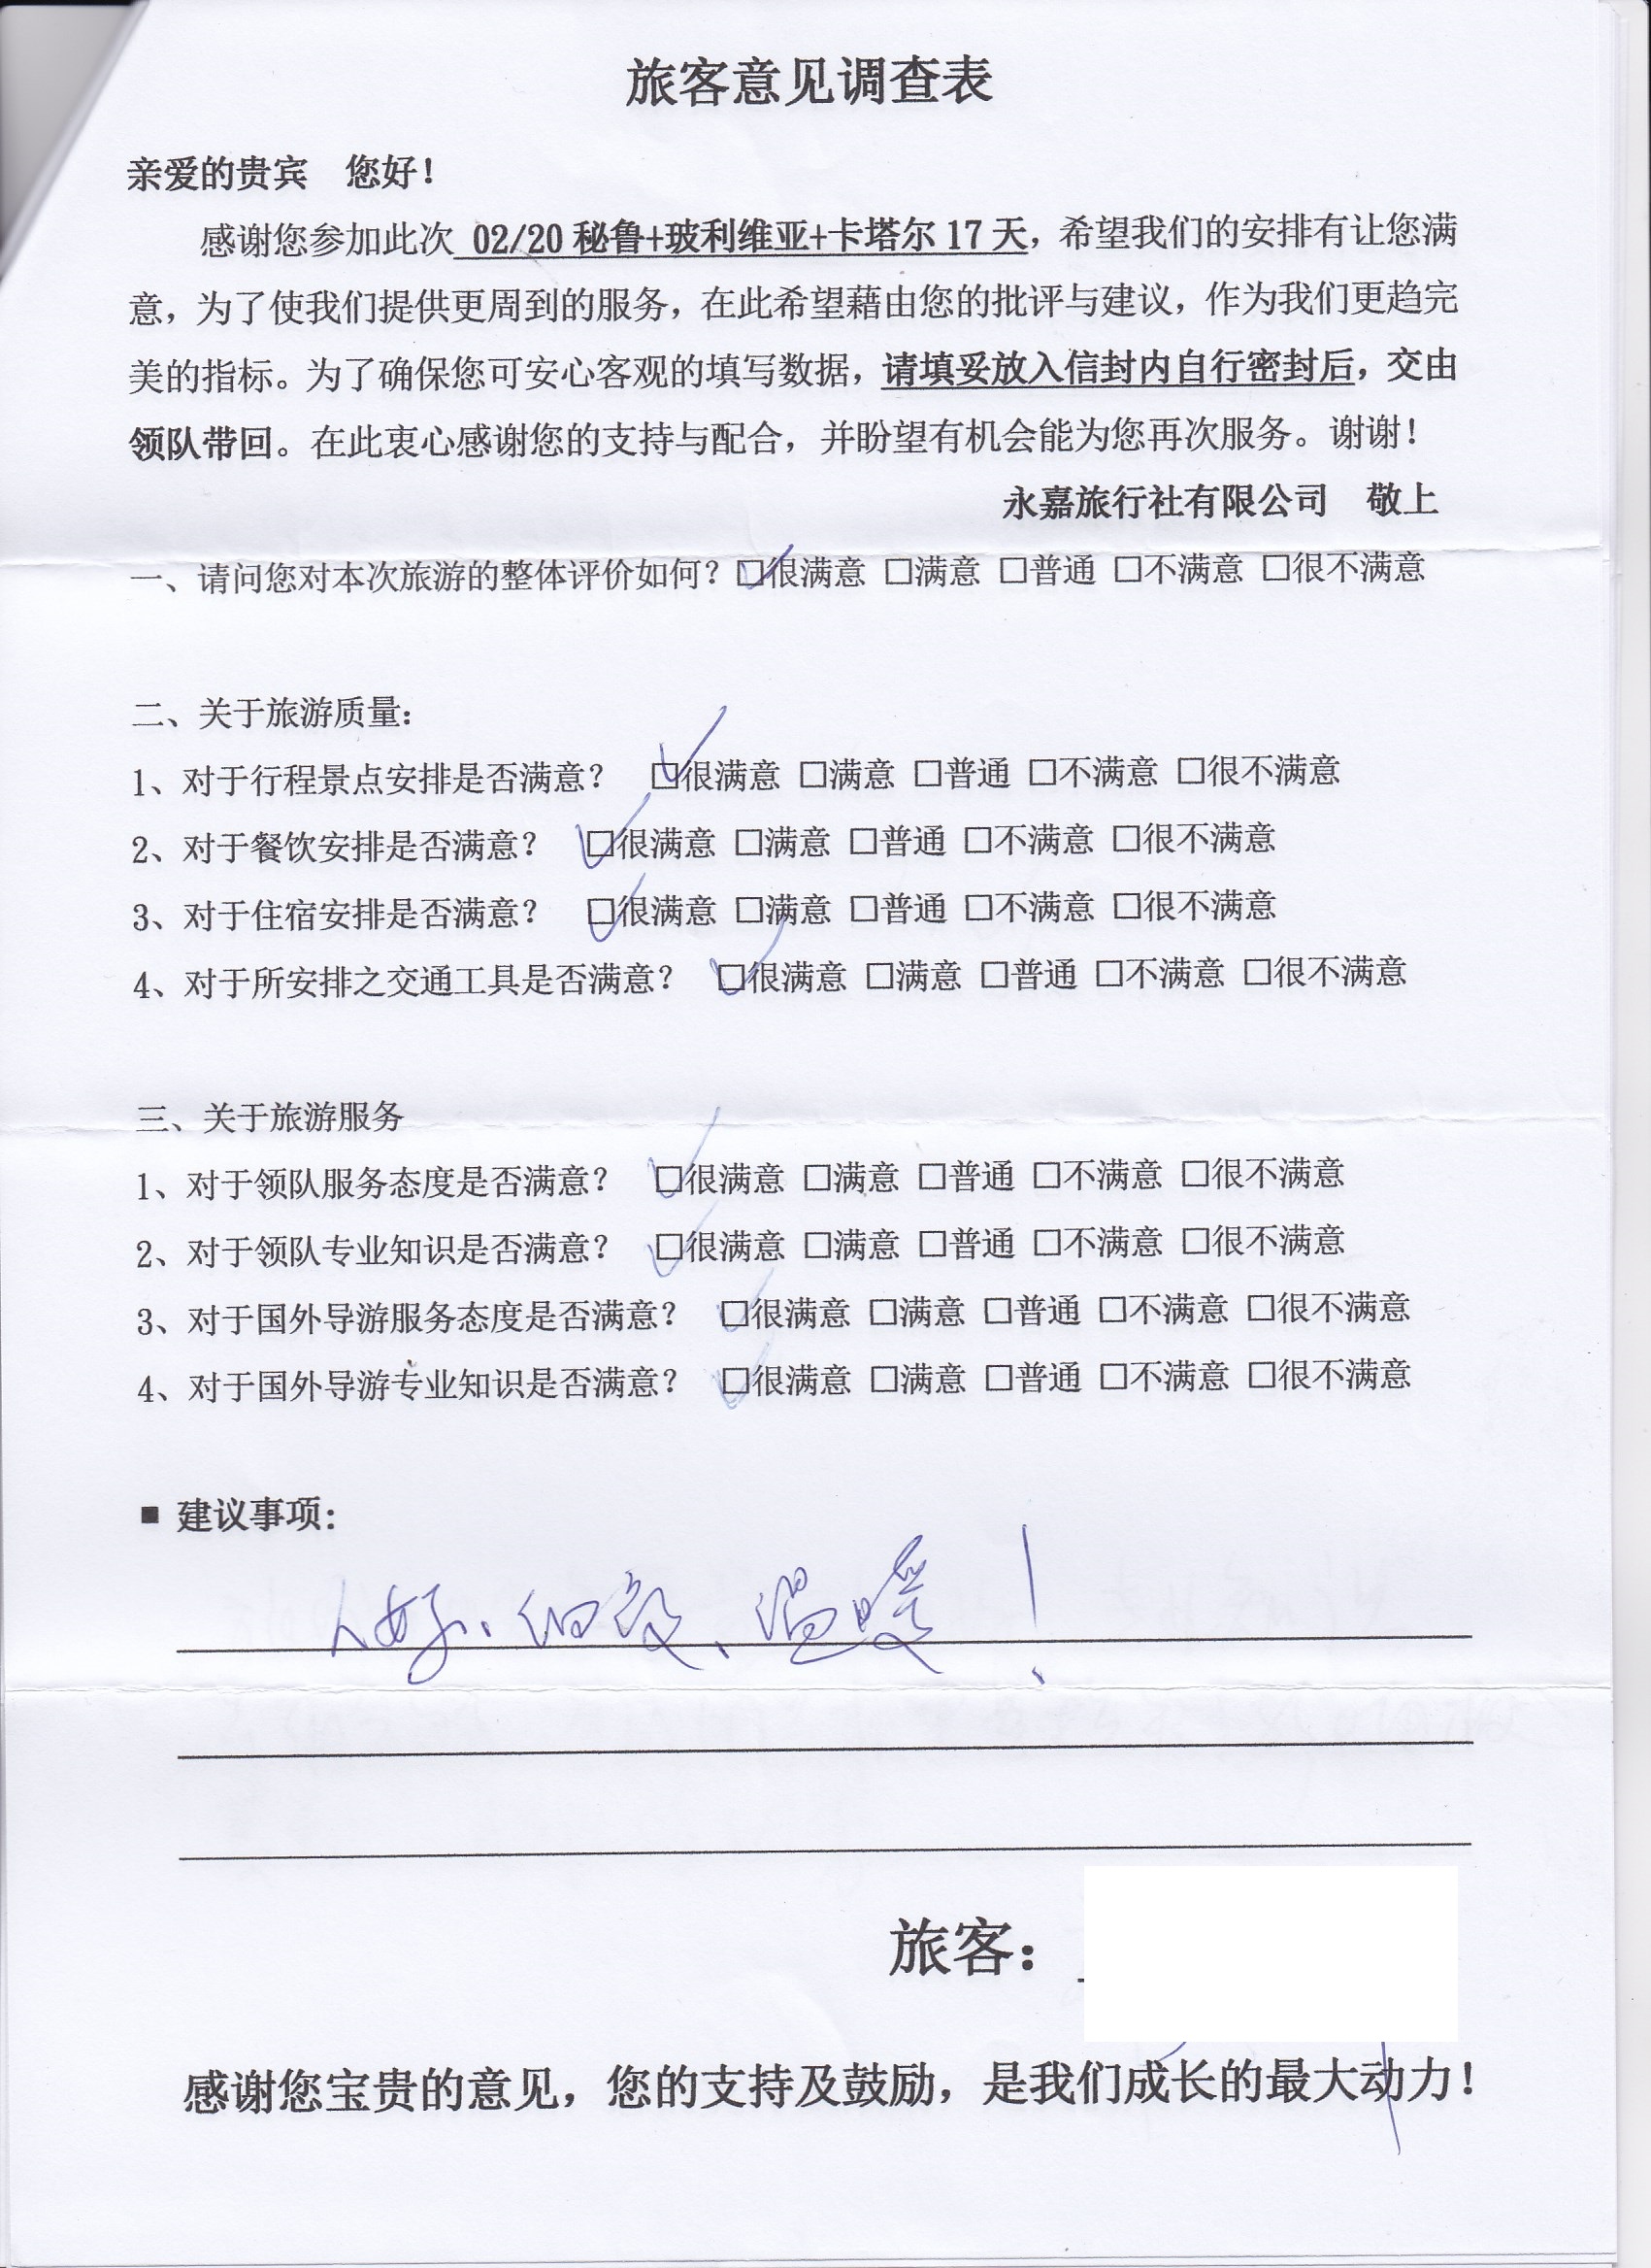 旅客意见调查表
亲爱的贵宾 您好！
感谢您参加此次 02/20 秘鲁+玻利维亚+卡塔尔 17 天，希望我们的安排有让您满
意，为了使我们提供更周到的服务，在此希望藉由您的批评与建议，作为我们更趋完
美的指标。为了确保您可安心客观的填写数据，请填妥放入信封内自行密封后，交由
领队带回。在此衷心感谢您的支持与配合，并盼望有机会能为您再次服务。谢谢！
永嘉旅行社有限公司 敬上
一、请问您对本次旅游的整体评价如何？☑很满意 □满意 □普通 □不满意 □很不满意
二、关于旅游质量：
1、对于行程景点安排是否满意？ ☑很满意 □满意 □普通 □不满意 □很不满意
2、对于餐饮安排是否满意？ ☑很满意 □满意 □普通 □不满意 □很不满意
3、对于住宿安排是否满意？ ☑很满意 □满意 □普通 □不满意 □很不满意
4、对于所安排之交通工具是否满意？ ☑很满意 □满意 □普通 □不满意 □很不满意
三、关于旅游服务
1、对于领队服务态度是否满意？ ☑很满意 □满意 □普通 □不满意 □很不满意
2、对于领队专业知识是否满意？ ☑很满意 □满意 □普通 □不满意 □很不满意
3、对于国外导游服务态度是否满意？ ☑很满意 □满意 □普通 □不满意 □很不满意
4、对于国外导游专业知识是否满意？ ☑很满意 □满意 □普通 □不满意 □很不满意
■ 建议事项：
人好、细致、温暖！
旅客：
感谢您宝贵的意见，您的支持及鼓励，是我们成长的最大动力！